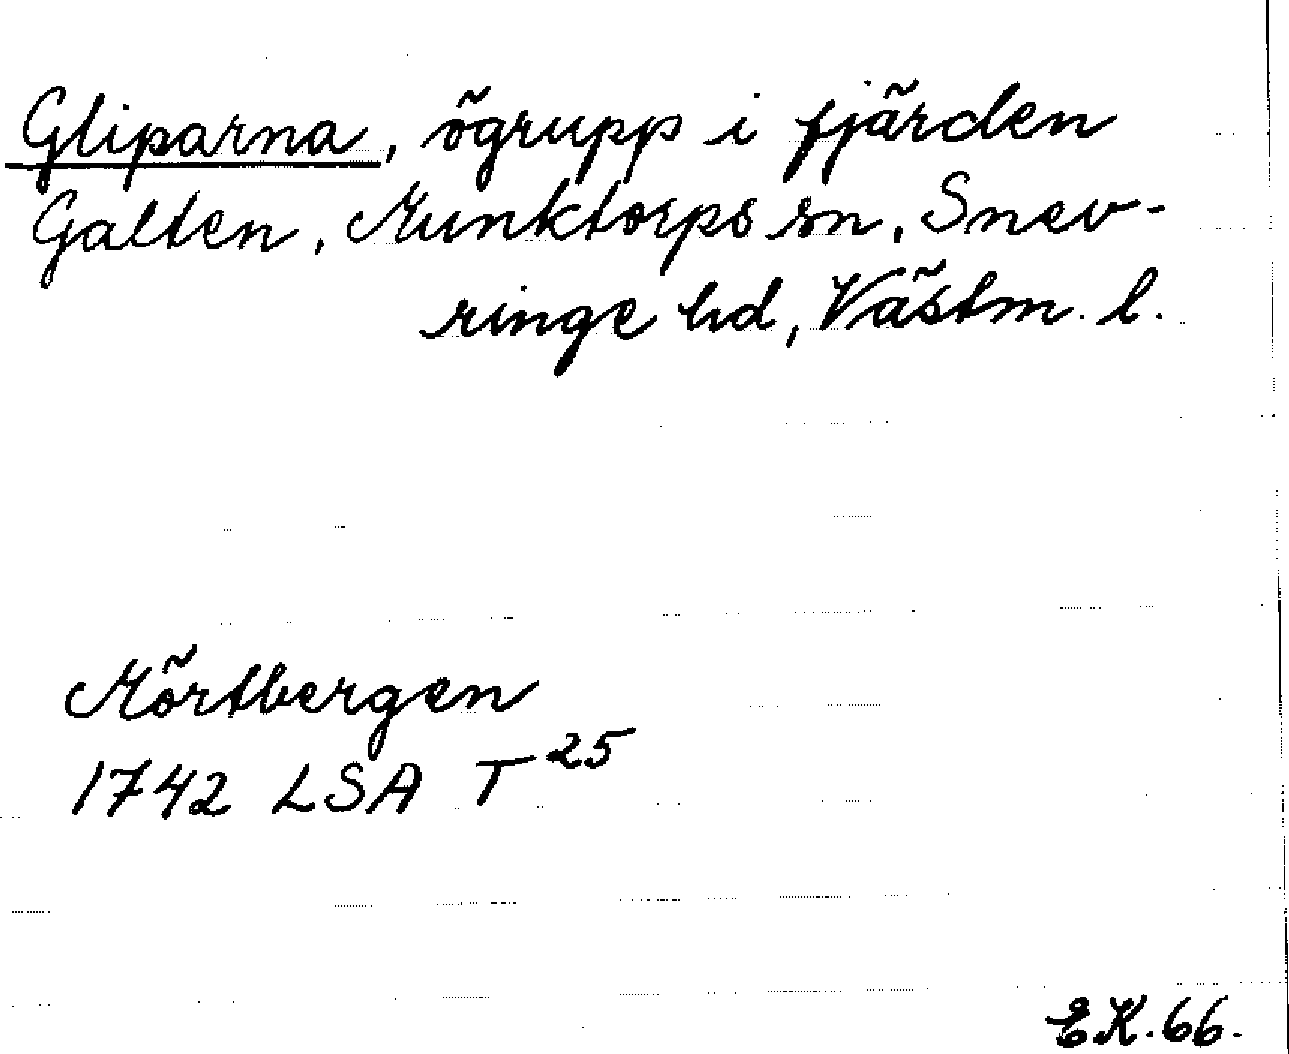 Gliparna, ögrupp i fjärden
Galten, Munktorps sn, Snev-
ringe hd, Västm. l.
Mörtbergen
1742 LSA T 25
EK. 66.